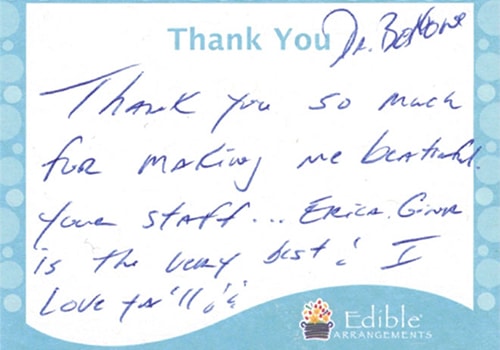 Thank You Dr.
Thank you so much
for making me beatiful.
your staff... Erica. Gina
is the very best! I
Love ya'll!!
Edible
ARRANGEMENTS